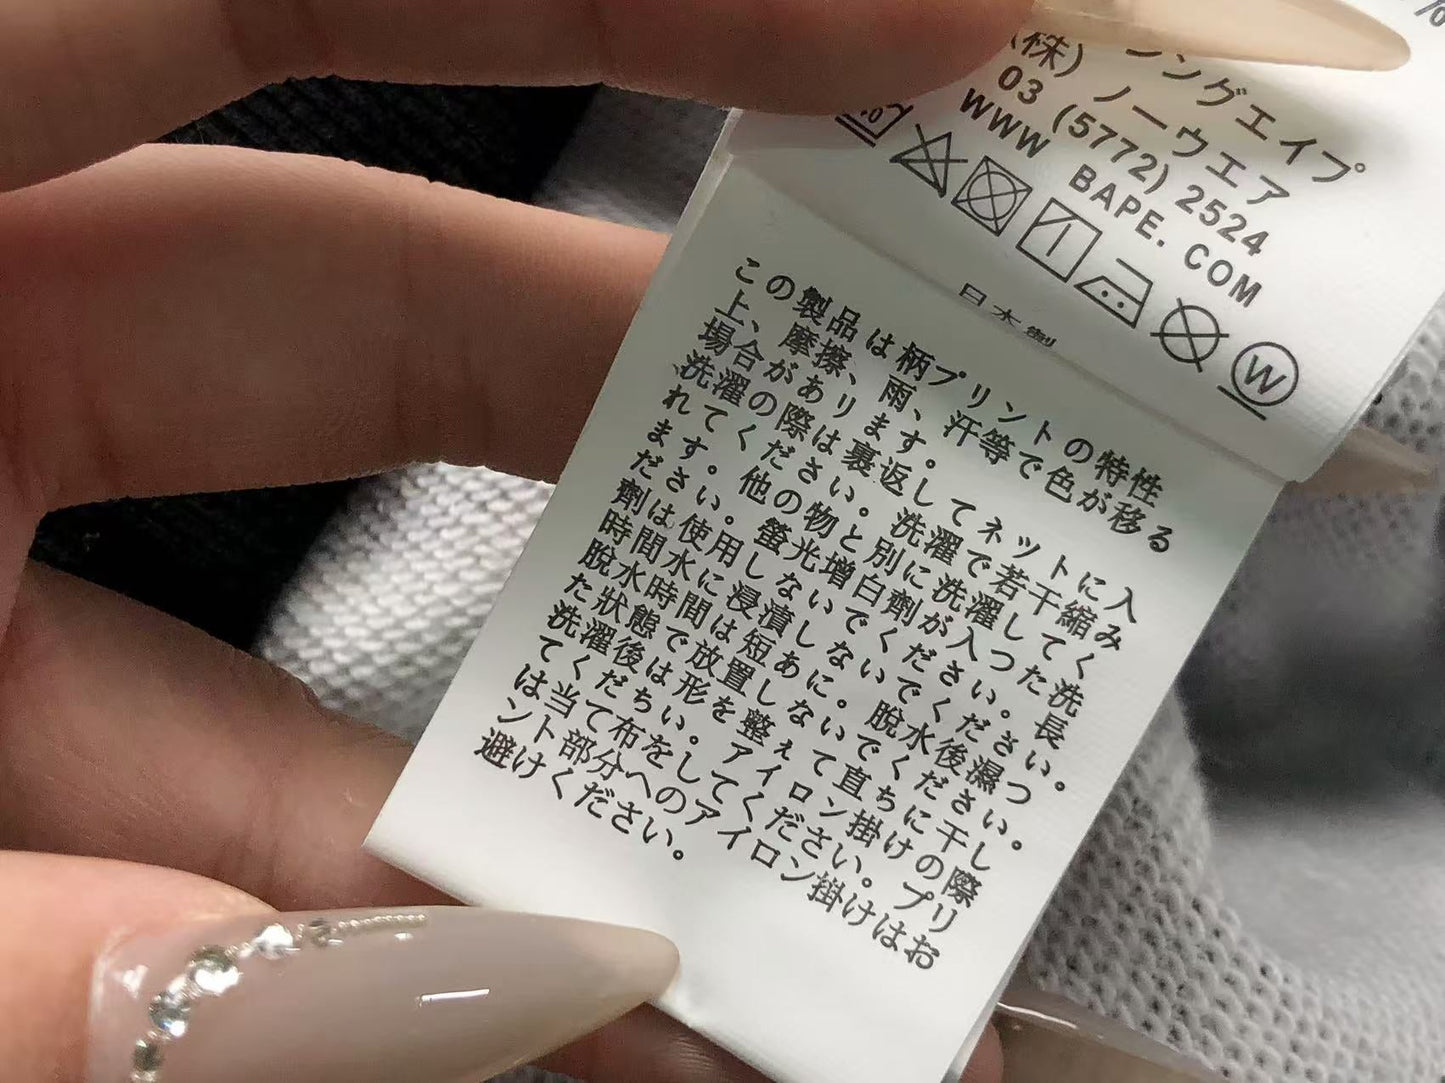 %
(株) ノーウエア
ングエイプ
03 (5772) 2524
WWW BAPE. COM
W
日本製
この製品は柄プリントの特性
上、摩擦、雨、汗等で色が移る
場合があります。
洗濯の際は裏返してネットに入
れてください。洗濯で若干縮み
ます。他の物と別に洗濯してく
ださい。螢光増白劑が入つた洗
劑は使用しないでください。長
時間水に浸漬しないでください。
脫水時間は短あに。脫水後濕つ
た狀態で放置しないでください。
洗濯後は形を整えて直ちに干し
てくだちい。アイロン掛けの際
は当て布をしてください。プリ
ント部分へのアイロン掛けはお
避けください。